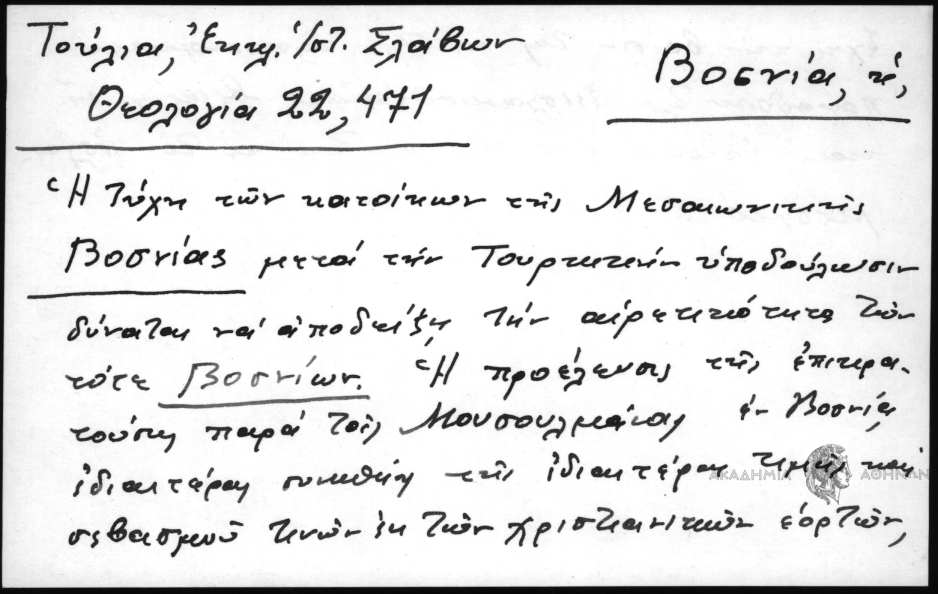 Τούλια, Ἐκκλ. Ἱστ. Σλάβων
Θεολογία 22, 471
Βοσνία, ἡ,
Ἡ τύχη τῶν κατοίκων τῆς Μεσαιωνικῆς
Βοσνίας μετά τήν Τουρκικήν ὑποδούλωσιν
δύναται νά ἀποδείξῃ τήν αἱρετικότητα τῶν
τότε Βοσνίων. Ἡ προέλευσις τῆς ἐπικρα-
τούσης παρά τοῖς Μουσουλμάνοις ἐν Βοσνίᾳ
ἰδιαιτέρας συνηθείας τῆς ἰδιαιτέρας τιμῆς καί
σεβασμοῦ τινῶν ἐκ τῶν χριστιανικῶν ἑορτῶν,
ΑΚΑΔΗΜΙΑ ΑΘΗΝΩΝ